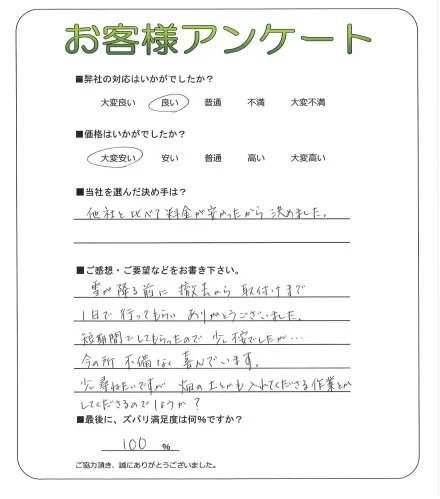 お客様アンケート
■弊社の対応はいかがでしたか?
大変良い 良い 普通 不満 大変不満
■価格はいかがでしたか?
大変安い 安い 普通 高い 大変高い
■当社を選んだ決め手は?
他社と比べて料金が安かったから決めました。
■ご感想・ご要望などをお書き下さい。
雪が降る前に撤去から取付けまで
1日で行ってもらいありがとうございました。
短期間でしてもらったので少し でしたが…
今の所不備なく喜んでいます。
少し尋ねたいですが 畑の土とかも入れてくださる作業とか
してくださるのでしょうか?
■最後に、ズバリ満足度は何%ですか?
100 %
ご協力頂き、誠にありがとうございました。